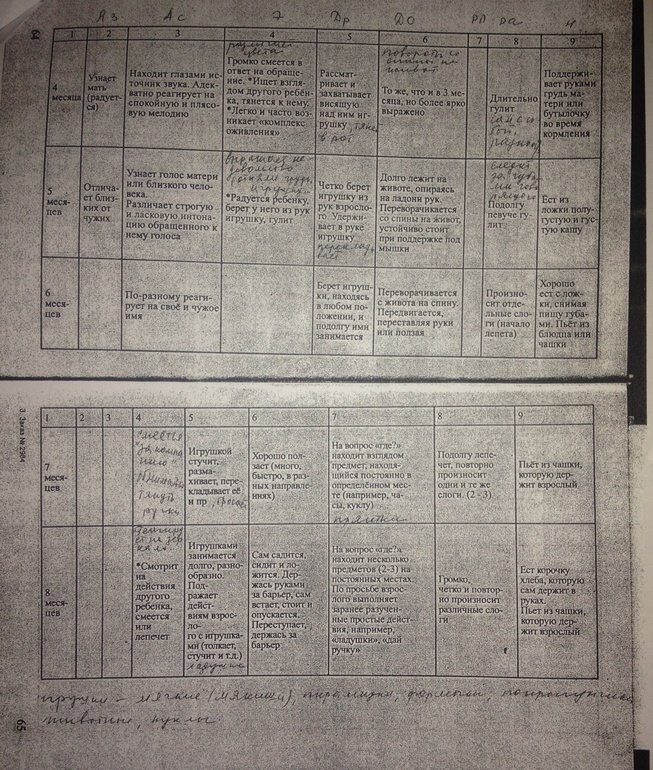 64
Аз Ас Э Др До РП Ра Н
1 2 3 4 5 6 7 8 9
4
месяца
Узнает
мать
(радует-
ся)
Находит глазами ис-
точник звука. Адек-
ватно реагирует на
спокойную и плясо-
вую мелодию
Громко смеется в
ответ на обраще-
ние. *Ищет взгля-
дом другого ребён-
ка, тянется к нему.
*Легко и часто воз-
никает «комплекс
оживления»
Рассмат-
ривает и
захватывает
висящую
над ним иг-
рушку
То же, что и в 3 ме-
сяца, но более ярко
выражено
Длительно
гулит
Поддержи-
вает руками
грудь ма-
тери или
бутылочку
во время
кормления
5
меся-
цев
Отлича-
ет близ-
ких от
чужих
Узнает голос матери
или близкого чело-
века.
Различает строгую
и ласковую интона-
цию обращенного к
нему голоса
*Радуется ребенку,
берет у него из рук
игрушку, гулит
Четко берет
игрушку из
рук взросло-
го. Удержи-
вает в руке
игрушку
Долго лежит на
животе, опираясь
на ладони рук.
Переворачивается
со спины на живот,
устойчиво стоит
при поддержке под
мышки
Подолгу
певуче гу-
лит
Ест из
ложки полу-
густую и гус-
тую кашу
6
меся-
цев
По-разному реаги-
рует на своё и чужое
имя
Берет игруш-
ки, находясь
в любом по-
ложении, и
подолгу ими
занимается
Переворачивается
с живота на спину.
Передвигается,
переставляя руки
или ползая
Произно-
сит отде-
льные сло-
ги (начало
лепета)
Хорошо
ест с лож-
ки, снимая
пищу губа-
ми. Пьёт из
блюдца или
чашки
3. Заказ № 2984
1 2 3 4 5 6 7 8 9
7
меся-
цев
Игрушкой
стучит,
разма-
хивает, пере-
кладывает её
и пр
Хорошо пол-
зает (много,
быстро, в раз-
ных направле-
ниях)
На вопрос «где?»
находит взглядом
предмет, находя-
щийся постоянно в
определённом мес-
те (например, ча-
сы, куклу)
Подолгу лепе-
чет, повторно
произносит
одни и те же
слоги. (2 - 3)
Пьёт из чашки,
которую дер-
жит взрослый
8
меся-
цев
*Смотрит
на
действия
другого
ребенка,
смеется
или
лепечет
Игрушками
занимается
долго, разно-
образно.
Под-
ражает
дейст-
виям взрос-
ло-
го с игрушка-
ми (толкает,
стучит и т.д.)
ладушки
Сам садится,
сидит и ло-
жится. Дер-
жась руками
за барьер, сам
встает, стоит и
опускается.
Переступает,
держась за
барьер
На вопрос «где?»
находит несколько
предметов (2-3) на
постоянных местах.
По просьбе взрос-
лого выполняет
заранее разучен-
ные простые дейст-
вия, например,
«ладушки», «дай
ручку»
Громко,
четко и повтор-
но произносит
различные сло-
ги
Ест корочку
хлеба, которую
сам держит в
руках.
Пьет из чашки,
которую дер-
жит взрослый
игрушки – мягкие пирамидки,
животные, куклы
65